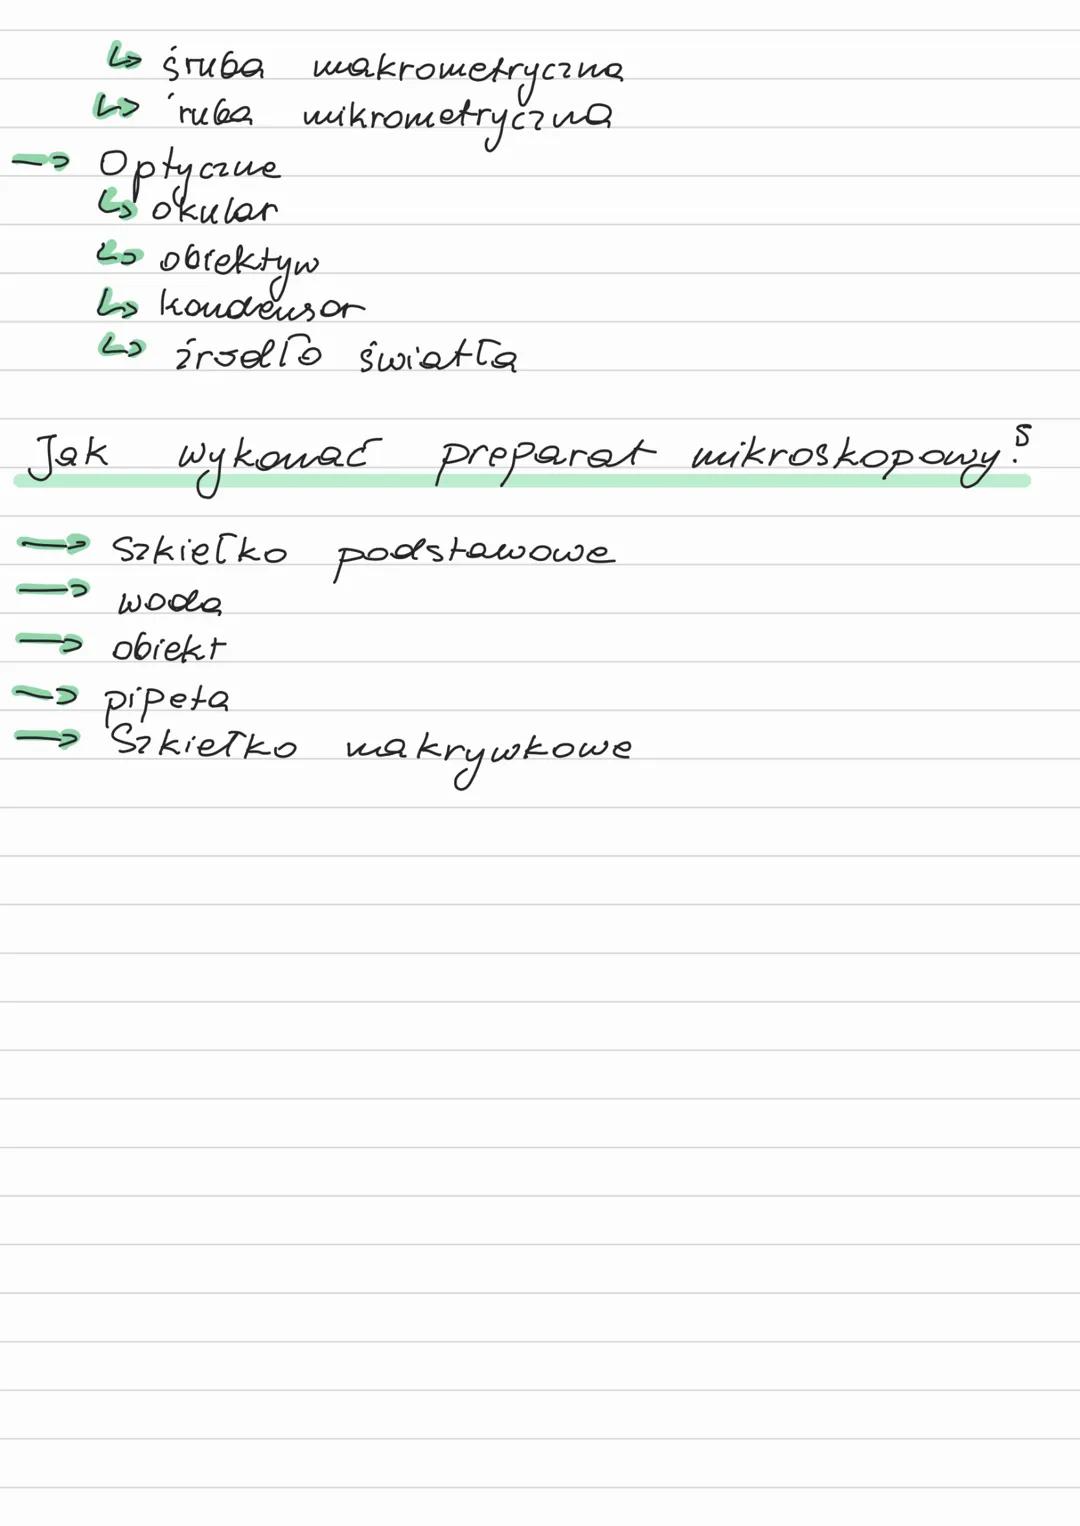 ↳ śruba makrometryczna
↳ ́ruba mikrometryczna
→ Optyczne
↳ okular
↳ obiektyw
↳ kondensor
↳ źrodło światła
Jak wykonać preparat mikroskopowy?
→ Szkiełko podstawowe
→ woda
→ obiekt
→ pipeta
→ Szkiełko nakrywkowe